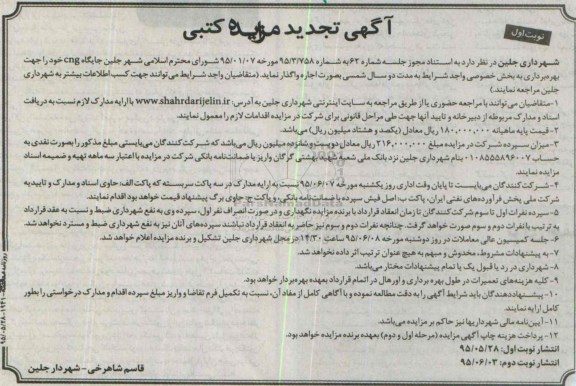 نوبت اول
آگهی تجدید مزایده کتبی
شهرداری جلین در نظر دارد به استناد مجوز جلسه شماره ۶۲ به شماره ۹۵/۳/۷۵۸ مورخه ۹۵/۰۱/۰۷ شورای محترم اسلامی شهر جلین جایگاه cng خود را جهت
بهره‌برداری به بخش خصوصی واجد شرایط به مدت دو سال شمسی بصورت اجاره واگذار نماید. (متقاضیان واجد شرایط می‌توانند جهت کسب اطلاعات بیشتر به شهرداری
جلین مراجعه نمایند.)
۱-متقاضیان می‌توانند با مراجعه حضوری یا از طریق مراجعه به سایت اینترنتی شهرداری جلین به آدرس: www.shahrdarijelin.ir با ارایه مدارک لازم نسبت به دریافت
اسناد و مدارک مربوطه از دبیرخانه و تایید آنها جهت طی مراحل قانونی برای شرکت در مزایده اقدامات لازم را معمول نمایند.
۲- قیمت پایه ماهیانه ۱۸۰٫۰۰۰٫۰۰۰ ریال معادل (یکصد و هشتاد میلیون ریال) می‌باشد.
۳- میزان سپرده شرکت در مزایده مبلغ ۲۱۶٫۰۰۰٫۰۰۰ ریال معادل دویست و شانزده میلیون ریال می‌باشد که شرکت‌کنندگان می‌بایستی مبلغ مذکور را بصورت نقدی به
حساب ۰۱۰۸۵۵۵۸۹۶۰۰۷ بنام شهرداری جلین نزد بانک ملی شعبه شهید بهشتی گرگان واریز یا ضمانت‌نامه بانکی شرکت در مزایده با اعتبار سه ماهه تهیه و ضمیمه اسناد
مزایده نمایند.
۴- شرکت‌کنندگان می‌بایست تا پایان وقت اداری روز یکشنبه مورخه ۹۵/۰۶/۰۷ نسبت به ارایه مدارک در سه پاکت سربسته که پاکت الف: حاوی اسناد و مدارک و تاییدیه
شرکت ملی پخش فرآورده‌های نفتی ایران، پاکت ب: اصل فیش سپرده یا ضمانت‌نامه بانکی، و پاکت ج حاوی برگ پیشنهاد قیمت خواهد بود اقدام نمایند.
۵- سپرده نفرات اول تا سوم شرکت‌کنندگان تا زمان انعقاد قرارداد با برنده مزایده نگهداری و در صورت انصراف نفر اول، سپرده وی به نفع شهرداری ضبط و نسبت به عقد قرارداد
به ترتیب با نفرات دوم و سوم صورت خواهد گرفت. چنانچه نفرات دوم و سوم نیز حاضر به انعقاد قرارداد نباشند سپرده‌های آنان نیز به نفع شهرداری ضبط و مسترد نخواهد شد.
۶- جلسه کمیسیون عالی معاملات در روز دوشنبه مورخه ۹۵/۰۶/۰۸ ساعت ۱۴/۳۰ در محل شهرداری جلین تشکیل و برنده مزایده اعلام خواهد شد.
۷- به پیشنهادات مشروط، مخدوش و مبهم به هیچ عنوان ترتیب اثر داده نخواهد شد.
۸- شهرداری در رد یا قبول یک یا تمام پیشنهادات مختار می‌باشد.
۹- کلیه هزینه‌های تعمیرات در طول بهره برداری و اورهال در اتمام قرارداد بعهده بهره‌بردار خواهد بود.
۱۰- پیشنهاددهندگان باید شرایط آگهی را به دقت مطالعه نموده و با آگاهی کامل از مفاد آن، نسبت به تکمیل فرم تقاضا و واریز مبلغ سپرده اقدام و مدارک درخواستی را بطور
کامل ارایه نمایند.
۱۱- آیین‌نامه مالی شهرداریها نیز حاکم بر مزایده می‌باشد.
۱۲- پرداخت هزینه چاپ آگهی مزایده (مرحله اول و دوم) بعهده برنده مزایده خواهد بود.
انتشار نوبت اول: ۹۵/۰۵/۲۸
انتشار نوبت دوم: ۹۵/۰۶/۰۳
قاسم شاهرخی - شهردار جلین